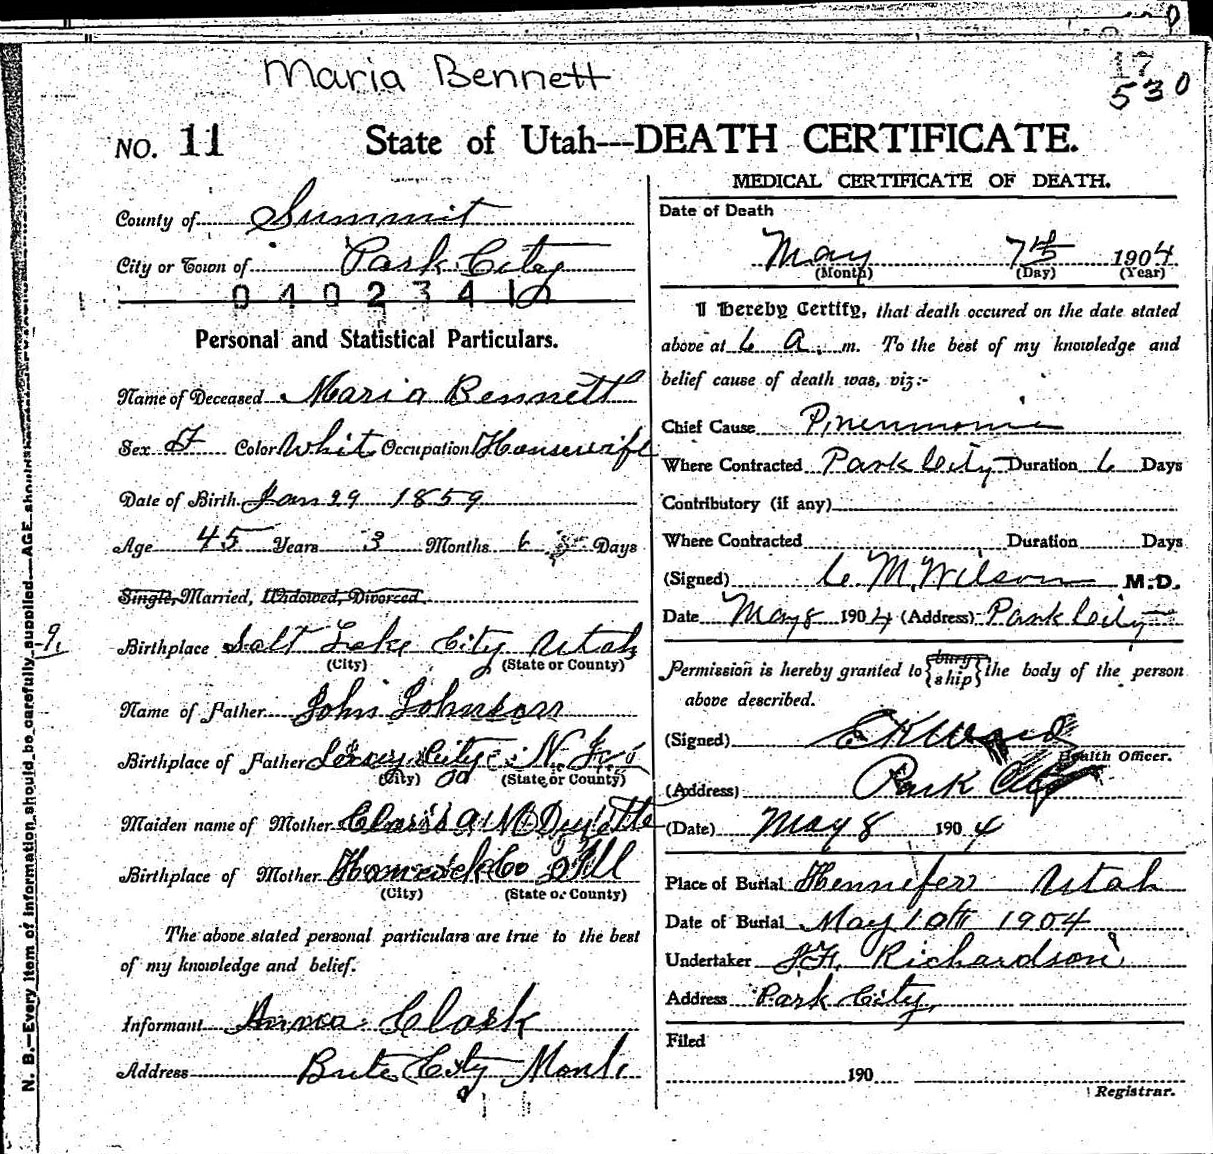 Maria Bennett
17
530
NO. 11 State of Utah---DEATH CERTIFICATE.
County of Summit
City or Town of Park City
0402341
Personal and Statistical Particulars.
Name of Deceased Maria Bennett
Sex F Color White Occupation Housewife
Date of Birth Jan 29 1859
Age 45 Years 3 Months Days
Single, Married, Widowed, Divorced
Birthplace Salt Lake City Utah
(City) (State or County)
Name of Father John Johnson
Birthplace of Father Jersey City N.
(City) (State or County)
Maiden name of Mother
Birthplace of Mother Co Ill
(City) (State or County)
The above stated personal particulars are true to the best
of my knowledge and belief.
Informant Anna Clark
Address Bute City Mont.
N. B.—Every item of information should be carefully supplied. AGE
MEDICAL CERTIFICATE OF DEATH.
Date of Death
May 7th 1904
(Month) (Day) (Year)
I Hereby Certify, that death occured on the date stated
above at 6 A. m. To the best of my knowledge and
belief cause of death was, viz:-
Chief Cause Pneumonia
Where Contracted Park City Duration 6 Days
Contributory (if any)
Where Contracted Duration Days
(Signed) C M Wilson M.D.
Date May 8 1904 (Address) Park City
Permission is hereby granted to {bury ship} the body of the person
above described.
(Signed) E K Ward
Health Officer.
(Address) Park City
(Date) May 8 1904
Place of Burial Hennefer Utah
Date of Burial May 10th 1904
Undertaker Richardson
Address Park City,
Filed
190
Registrar.